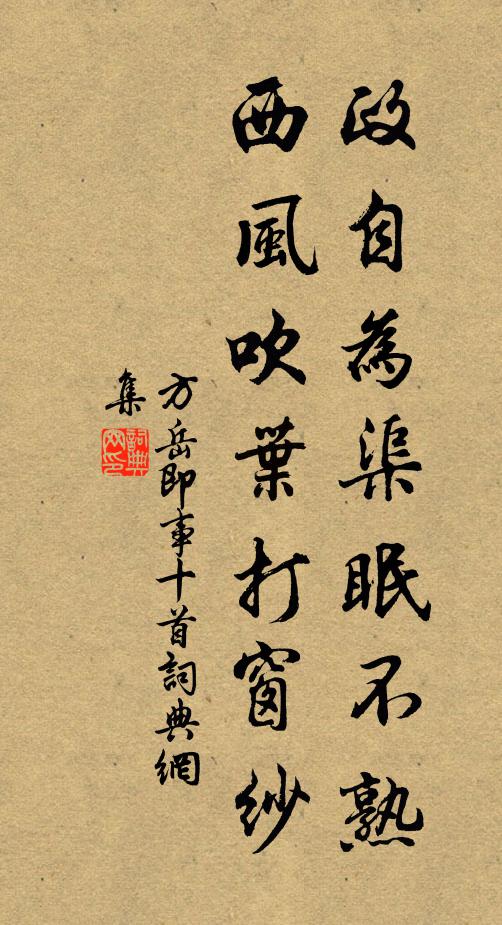 政自為渠眠不熟
西風吹葉打窗紗
方岳即事十首詞典網
集
詞典網印